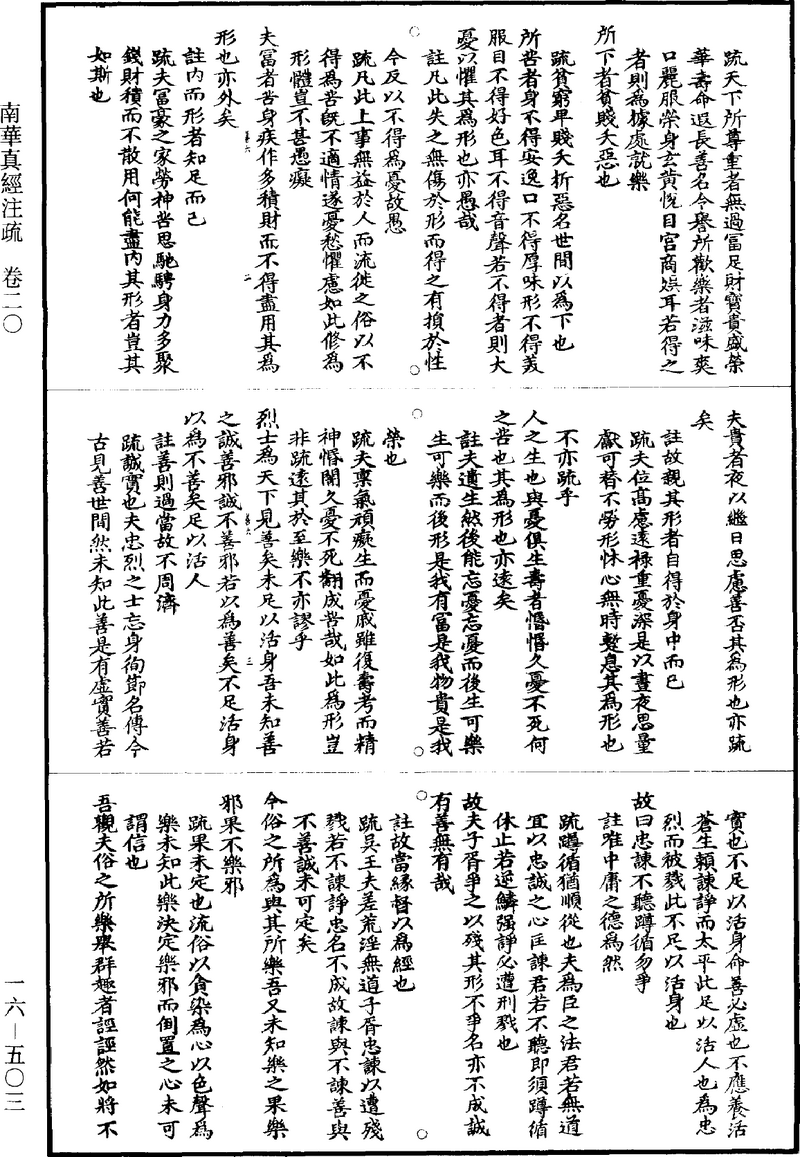 南華真經注疏　卷二〇
一六—五〇三
疏天下所尊重者無過冨足財寶貴盛榮
華壽命遐長善名令譽所歡樂者滋味爽
口麗服榮身玄黄悅目宫商娛耳若得之
者則爲據處就樂
所下者貧賤夭惡也
疏貧窮卑賤夭折惡名世間以爲下也
所苦者身不得安逸口不得厚味形不得美
服目不得好色耳不得音聲若不得者則大
憂以懼其爲形也亦愚哉
註凡此失之無傷於形而得之有損於性
今反以不得爲憂故愚
疏凡此上事無益於人而流徙之俗以不
得為苦既不適情遂憂愁懼慮如此修爲
形體豈不甚愚癡
夫冨者苦身疾作多積財而不得盡用其爲
形也亦外矣
註内而形者知足而已
疏夫冨豪之家勞神苦思馳騁身力多聚
錢財積而不散用何能盡内其形者豈其
如斯也
夫貴者夜以繼日思慮善否其爲形也亦疏
矣
註故親其形者自得於身中而已
疏夫位髙慮遠禄重憂深是以晝夜思量
獻可替不勞形怵心無時蹔息其爲形也
不亦疏乎
人之生也與憂俱生壽者惛惛久憂不死何
之苦也其爲形也亦遠矣
註夫遺生然後能忘憂忘憂而後生可樂
生可樂而後形是我有冨是我物貴是我
榮也
疏夫稟氣頑癡生而憂戚雖復壽考而精
神惛闇久憂不死翻成苦哉如此爲形豈
非疏遠其於至樂不亦謬乎
烈士爲天下見善矣未足以活身吾未知善
之誠善邪誠不善邪若以爲善矣不足活身
以爲不善矣足以活人
註善則過當故不周濟
疏誠實也夫忠烈之士忘身徇節名傳今
古見善世間然未知此善是有虛實善若
實也不足以活身命善必虛也不應養活
蒼生頼諫諍而太平此足以活人也為忠
烈而被戮此不足以活身也
故曰忠諫不聽蹲循勿爭
註唯中庸之德爲然
疏蹲循猶順從也夫爲臣之法君若無道
宜以忠誠之心匡諫君若不聽即須蹲循
休止若逆鱗强諍必遭刑戮也
故夫子胥爭之以殘其形不爭名亦不成誠
有善無有哉
註故當緣督以爲經也
疏吴王夫差荒淫無道子胥忠諫以遭殘
戮若不諫諍忠名不成故諫與不諫善與
不善誠未可定矣
今俗之所爲與其所樂吾又未知樂之果樂
邪果不樂邪
疏果未定也流俗以貪染爲心以色聲爲
樂未知此樂決定樂邪而倒置之心未可
謂信也
吾觀夫俗之所樂舉群趣者誙誙然如將不